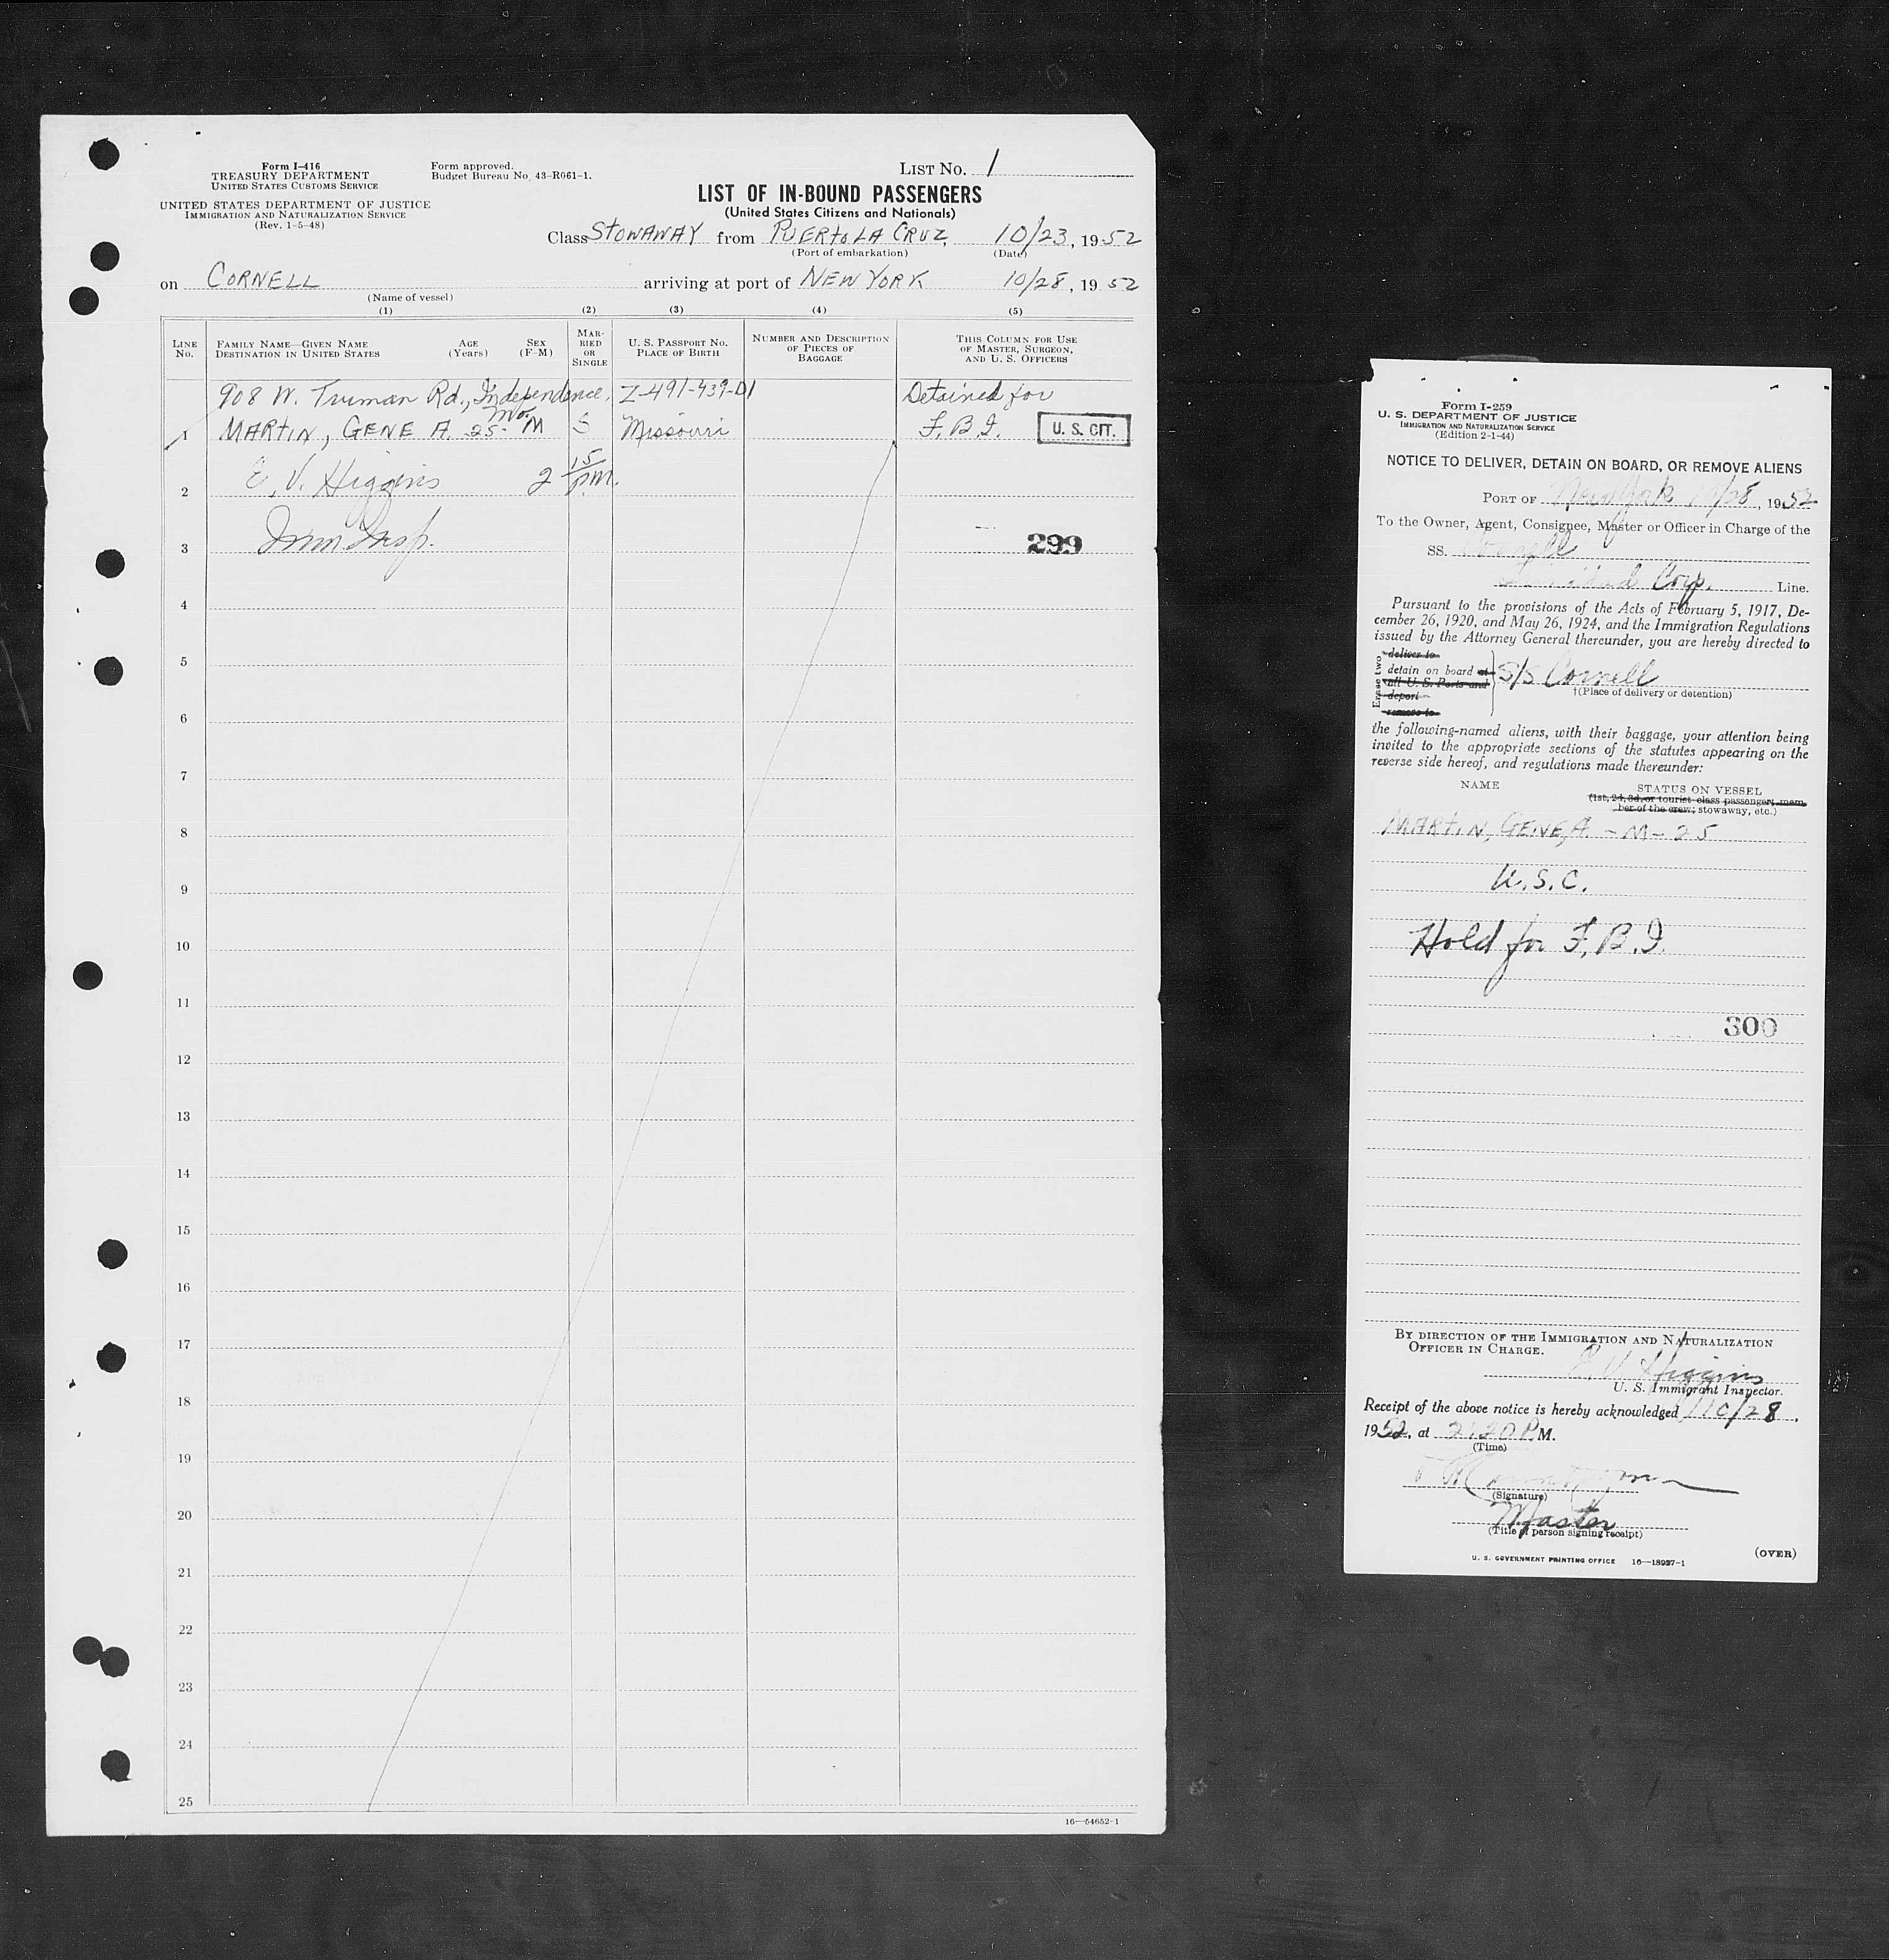 Form I-416
TREASURY DEPARTMENT
UNITED STATES CUSTOMS SERVICE
UNITED STATES DEPARTMENT OF JUSTICE
IMMIGRATION AND NATURALIZATION SERVICE
(Rev. 1-5-48)
Form approved.
Budget Bureau No. 43-R061-1.
LIST No. 1
LIST OF IN-BOUND PASSENGERS
(United States Citizens and Nationals)
Class STOWAWAY from PUERTO LA CRUZ, 10/23, 1952
(Port of embarkation) (Date)
on CORNELL arriving at port of NEW YORK 10/28, 1952
(Name of vessel)
(1) (2) (3) (4) (5)
LINE No.
FAMILY NAME—GIVEN NAME
DESTINATION IN UNITED STATES
AGE (Years)
SEX (F-M)
MARRIED OR SINGLE
U. S. PASSPORT No.
PLACE OF BIRTH
NUMBER AND DESCRIPTION OF PIECES OF BAGGAGE
THIS COLUMN FOR USE OF MASTER, SURGEON, AND U. S. OFFICERS
908 W. Truman Rd., Independence, Mo. Z-491-939-D1 Detained for
1 MARTIN, GENE A. 25- M S Missouri F.B.I. U. S. CIT.
2 E. V. Higgins 2 15/PM.
3 Imm Insp. 299
4
5
6
7
8
9
10
11
12
13
14
15
16
17
18
19
20
21
22
23
24
25
16—54652-1
Form I-259
U. S. DEPARTMENT OF JUSTICE
IMMIGRATION AND NATURALIZATION SERVICE
(Edition 2-1-44)
NOTICE TO DELIVER, DETAIN ON BOARD, OR REMOVE ALIENS
PORT OF New York 10/28, 1952
To the Owner, Agent, Consignee, Master or Officer in Charge of the
SS. Cornell
Corp. Line.
Pursuant to the provisions of the Acts of February 5, 1917, De-
cember 26, 1920, and May 26, 1924, and the Immigration Regulations
issued by the Attorney General thereunder, you are hereby directed to
Erase two
deliver to
detain on board at
all U. S. Ports and
deport
remove to
S/S Cornell
†(Place of delivery or detention)
the following-named aliens, with their baggage, your attention being
invited to the appropriate sections of the statutes appearing on the
reverse side hereof, and regulations made thereunder:
NAME STATUS ON VESSEL
(1st, 2d, 3d, or tourist class passenger, mem-
ber of the crew; stowaway, etc.)
MARTIN, GENE, A. - M - 25
U.S.C.
Hold for F.B.I.
300
BY DIRECTION OF THE IMMIGRATION AND NATURALIZATION
OFFICER IN CHARGE.
E. V. Higgins
U. S. Immigrant Inspector.
Receipt of the above notice is hereby acknowledged 10/28,
1952, at 2:20 P.M.
(Time)
(Signature)
Master
(Title of person signing receipt)
U. S. GOVERNMENT PRINTING OFFICE 16—18997-1
(OVER)